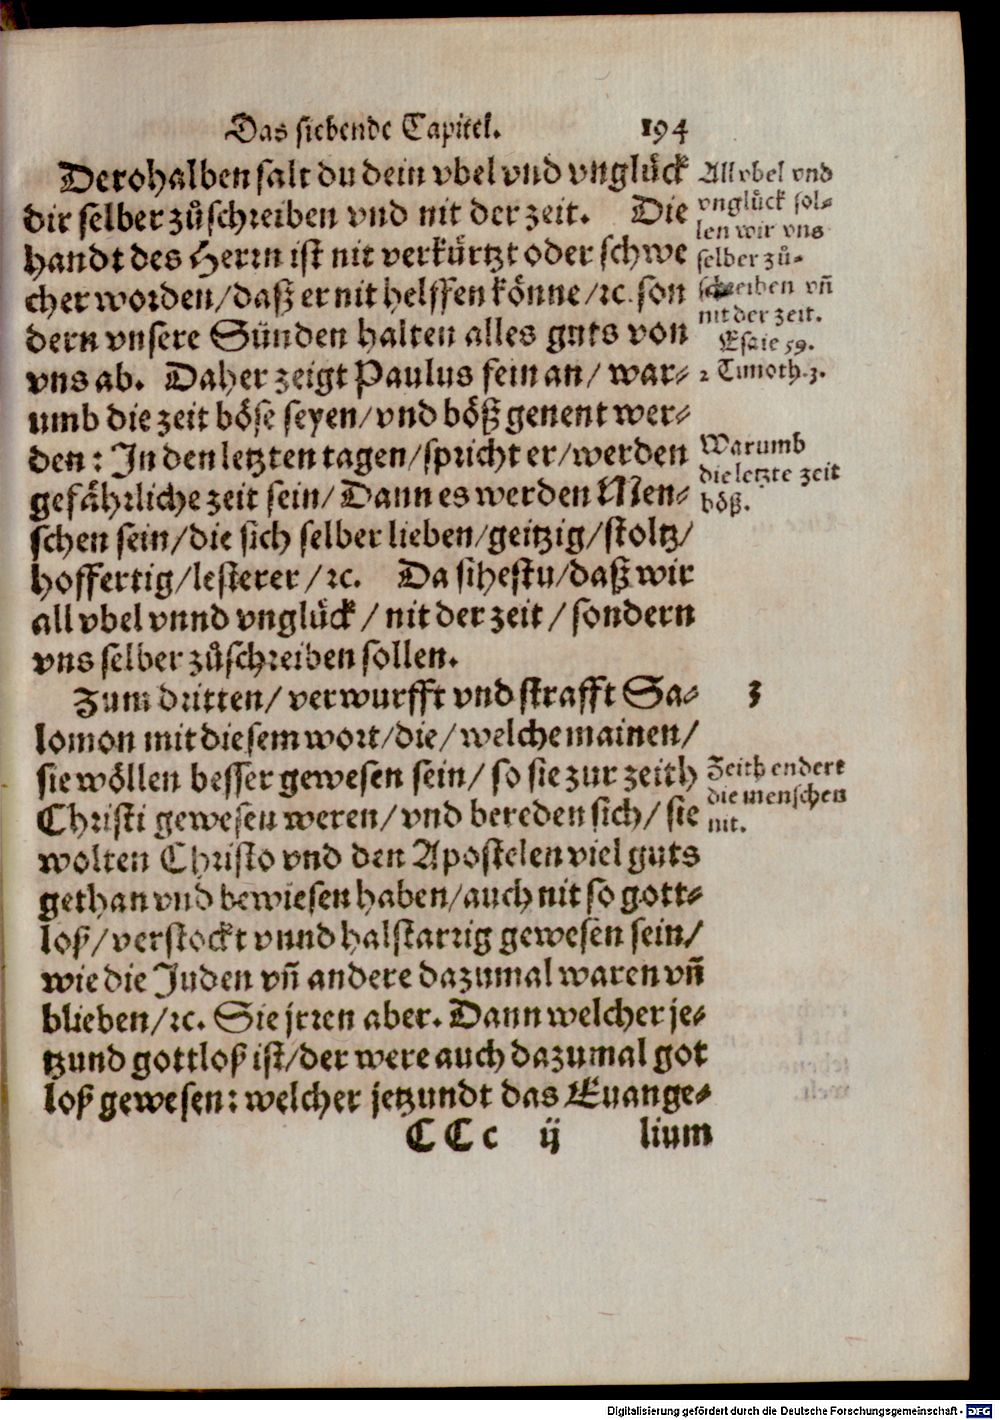 Das siebende Capitel. 194
Derohalben salt du dein vbel vnd vnglück
dir selber zůschreiben vnd nit der zeit. Die
handt des Herrn ist nit verkürtzt oder schwe
cher worden/daß er nit helffen könne/ꝛc. son
dern vnsere Sünden halten alles guts von
vns ab. Daher zeigt Paulus fein an/ war-
umb die zeit böse seyen/vnd böß genent wer-
den: In den letzten tagen/spricht er/werden
gefährliche zeit sein/ Dann es werden Men-
schen sein/die sich selber lieben/geitzig/stoltz/
hoffertig/lesterer/ꝛc. Da sihestu/daß wir
all vbel vnnd vnglück/ nit der zeit/ sondern
vns selber zůschreiben sollen.
Zum dritten/ verwurfft vnd strafft Sa-
lomon mit diesem wort/die/ welche mainen/
sie wöllen besser gewesen sein/ so sie zur zeith
Christi gewesen weren/ vnd bereden sich/ sie
wolten Christo vnd den Apostelen viel guts
gethan vnd bewiesen haben/auch nit so gott-
loß/verstockt vnnd halstarrig gewesen sein/
wie die Juden vñ andere dazumal waren vñ
blieben/ꝛc. Sie jrren aber. Dann welcher je-
tzund gottloß ist/der were auch dazumal got
loß gewesen: welcher jetzundt das Euange-
CCc ij lium
All vbel vnd
vnglück sol-
len wir vns
selber zů-
schreiben vñ
nit der zeit.
Esaie 59.
2 Timoth. 3.
Warumb
die letzte zeit
böß.
3
Zeith endert
die menschen
nit.
Digitalisierung gefördert durch die Deutsche Forschungsgemeinschaft - DFG